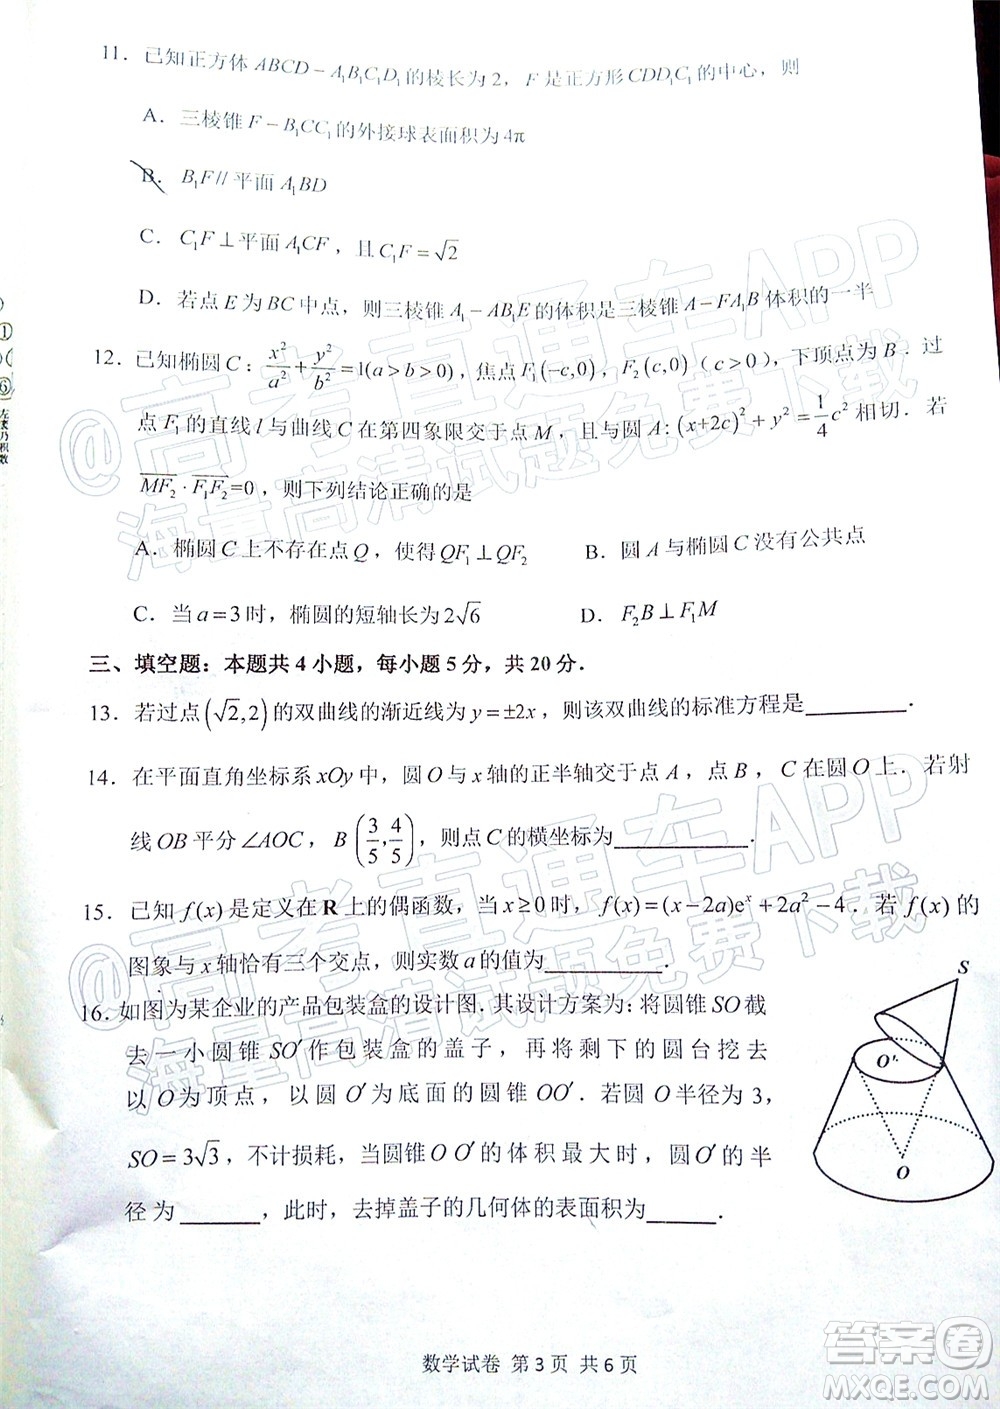 11．已知正方体 ABCD－A₁B₁C₁D₁ 的棱长为 2，F 是正方形 CDD₁C₁ 的中心，则
A．三棱锥 F－B₁CC₁ 的外接球表面积为 4π
B．B₁F // 平面 A₁BD
C．C₁F⊥平面 A₁CF，且 C₁F=√2
D．若点 E 为 BC 中点，则三棱锥 A₁－AB₁E 的体积是三棱锥 A－FA₁B 体积的一半
12．已知椭圆 C：x²/a²+y²/b²=1(a>b>0)，焦点 F₁(−c,0)，F₂(c,0)（c>0），下顶点为 B．过
点 F₁ 的直线 l 与曲线 C 在第四象限交于点 M，且与圆 A：(x+2c)²+y²=1/4c² 相切．若
MF₂·F₁F₂=0，则下列结论正确的是
A．椭圆 C 上不存在点 Q，使得 QF₁⊥QF₂ B．圆 A 与椭圆 C 没有公共点
C．当 a=3 时，椭圆的短轴长为 2√6 D．F₂B⊥F₁M
三、填空题：本题共 4 小题，每小题 5 分，共 20 分．
13．若过点(√2,2)的双曲线的渐近线为 y=±2x，则该双曲线的标准方程是________．
14．在平面直角坐标系 xOy 中，圆 O 与 x 轴的正半轴交于点 A，点 B，C 在圆 O 上．若射
线 OB 平分∠AOC，B(3/5,4/5)，则点 C 的横坐标为________．
15．已知 f(x) 是定义在 R 上的偶函数，当 x≥0 时，f(x)=(x−2a)eˣ+2a²−4．若 f(x) 的
图象与 x 轴恰有三个交点，则实数 a 的值为________．
16．如图为某企业的产品包装盒的设计图．其设计方案为：将圆锥 SO 截
去一小圆锥 SO′ 作包装盒的盖子，再将剩下的圆台挖去
以 O 为顶点，以圆 O′ 为底面的圆锥 OO′．若圆 O 半径为 3，
SO=3√3，不计损耗，当圆锥 O O′ 的体积最大时，圆 O′ 的半
径为______，此时，去掉盖子的几何体的表面积为______．
S
O′
O
数学试卷 第 3 页 共 6 页
@高考直通车APP
海量高清试题免费下载
@高考直通车APP
海量高清试题免费下载
答案卷
MXQE.COM
①
⑥